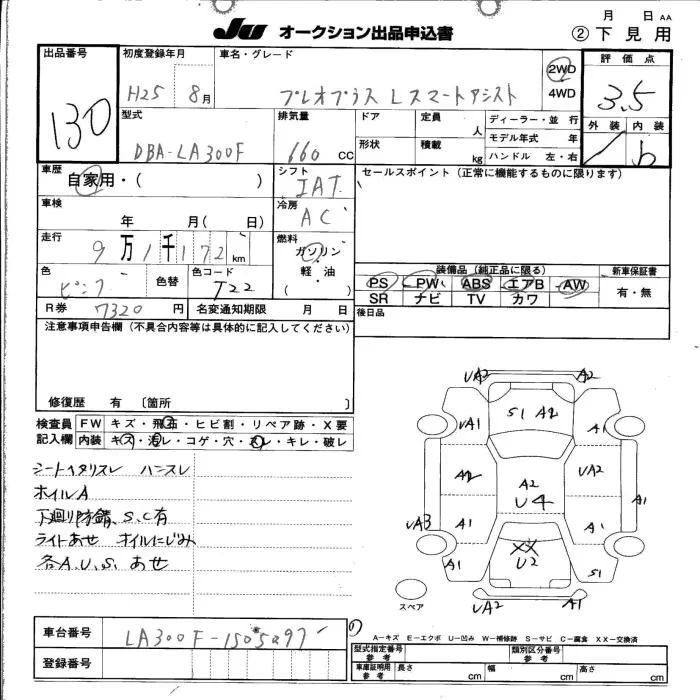 JU オークション出品申込書
月 日 AA
② 下見用
出品番号
130
初度登録年月
H25 8月
車名・グレード
プレオプラス Lスマートアシスト
2WD
4WD
評価点
3.5
外装 内装
b
型式
DBA-LA300F
排気量
660 cc
ドア
定員
人
形状
積載
kg
ディーラー・並行
モデル年式 年
ハンドル 左・右
車歴
自家用・( )
シフト
IAT
セールスポイント(正常に機能するものに限ります)
車検
年 月( 日)
冷房
AC
走行
9万1千172km
燃料
ガソリン
・
軽油
( )
色
ピンク
色替
色コード
T22
装備品(純正品に限る)
PS PW ABS エアB AW
SR ナビ TV カワ
新車保証書
有・無
R券 7320円
名変通知期限 月 日
後日品
注意事項申告欄(不具合内容等は具体的に記入してください)
修復歴 有 〔箇所 〕
検査員
記入欄
FW キズ・飛石・ヒビ割・リペア跡・X要
内装 キズ・汚レ・コゲ・穴・スレ・キレ・破レ
シートヘタリスレ ハンスレ
ホイルA
下廻り防錆、S.C有
ライトあせ オイルにじみ
各A.U.S. あせ
UA2
A2
UA1
S1 A2
A1
A2
UA2
A2
U4
UA3
A1
A1
A1
XX
U2
A1
S1
UA2
A1
スペア
車台番号
LA300F-1505297
登録番号
A−キズ E−エクボ U−凹み W−補修跡 S−サビ C−腐食 XX−交換済
型式指定番号
参考
類別区分番号
参考
車庫証明用
参考
長さ cm
幅 cm
高さ cm